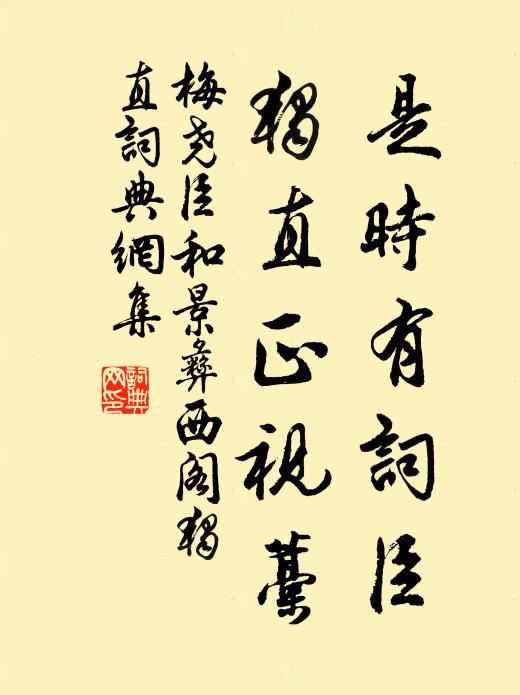 是時有詞臣
獨直正視藁
梅尧臣和景彝西阁獨
直詞典網集
詞典網印